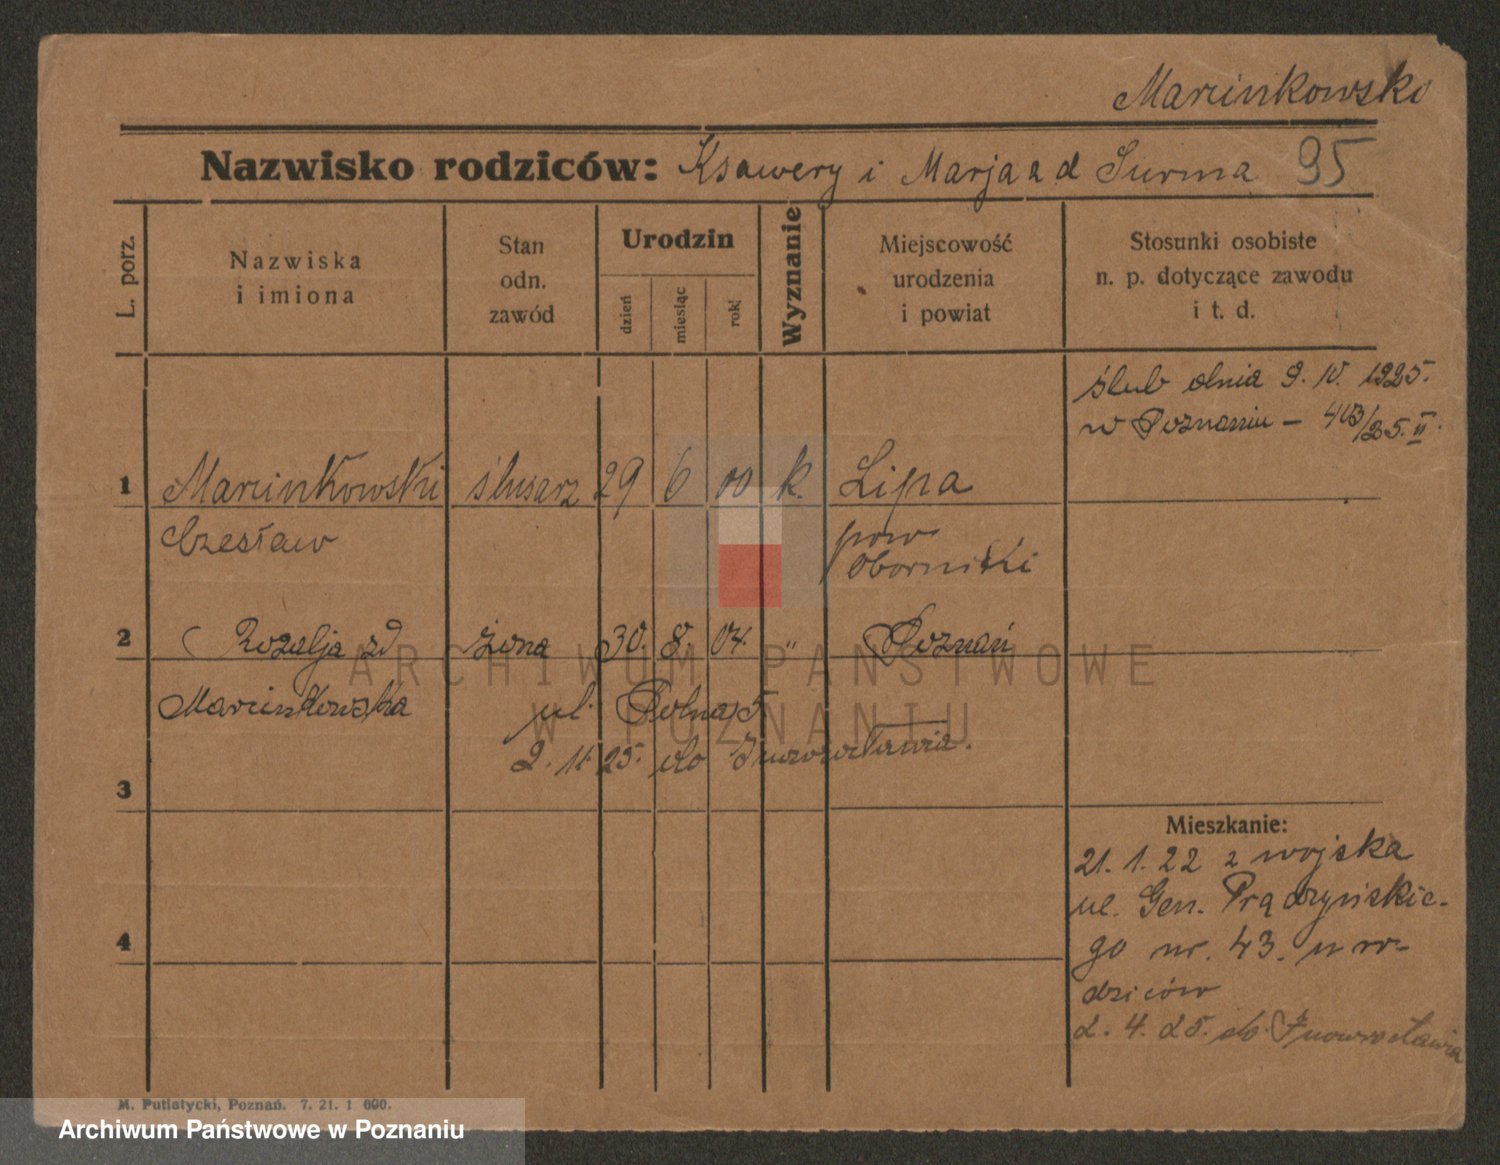 Marcinkowski
Nazwisko rodziców: Ksawery i Marja a d Surma 95
L. porz.
Nazwiska
i imiona
Stan
odn.
zawód
Urodzin
dzień
miesiąc
rok
Wyznanie
Miejscowość
urodzenia
i powiat
Stosunki osobiste
n. p. dotyczące zawodu
i t. d.
ślub dnia 9. IV. 1925.
w Poznaniu – 413/25. II.
1 Marcinkowski ślusarz 29 6 00 k. Lipa
Czesław pow
Oborniki
2 Rozalja zd żona 30. 8. 04. " Poznań
Marcinkowska ul. Polna 5
2. 11 25. do Inowrocławia.
3
Mieszkanie:
21. 1. 22 z wojska
ul. Gen. Prądzyńskie-
4 go nr. 43. u ro-
dziców
2. 4. 25. do Inowrocławia
M. Putiatycki, Poznań. 7. 21. 1 000.
ARCHIWUM PAŃSTWOWE
W POZNANIU
Archiwum Państwowe w Poznaniu